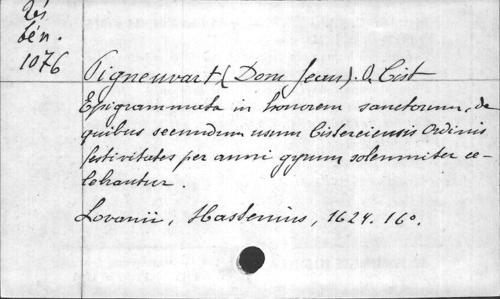 Rés
bén.
1076
Pigneuvart (Dom Jean). O. Cist
Epigrammata in honorem sanctorum, de
quibus secundum usum Cisterciensis Ordinis
festivitates per anni gyrum solemniter ce-
lebrantur.
Lovanii, Hastenius, 1624. 16o.